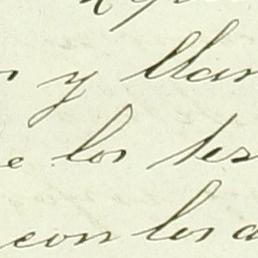 y llan
e los tes
con los a